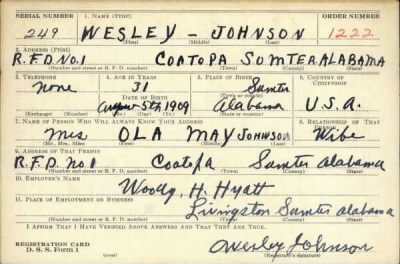 SERIAL NUMBER 1. NAME (Print) ORDER NUMBER
249 WESLEY - JOHNSON 1222
(First) (Middle) (Last)
2. ADDRESS (Print)
R.F.D. No. 1 COATOPA SUMTER ALABAMA
(Number and street or R. F. D. number) (Town) (County) (State)
3. TELEPHONE 4. AGE IN YEARS 5. PLACE OF BIRTH 6. COUNTRY OF CITIZENSHIP
none 31 Sumter
DATE OF BIRTH (Town or county)
August 5th, 1909 Alabama U.S.A.
(Exchange) (Number) (Mo.) (Day) (Yr.) (State or country)
7. NAME OF PERSON WHO WILL ALWAYS KNOW YOUR ADDRESS 8. RELATIONSHIP OF THAT PERSON
Mrs OLA MAY JOHNSON Wife
(Mr., Mrs., Miss) (First) (Middle) (Last)
9. ADDRESS OF THAT PERSON
R.F.D. No 1 Coatopa Sumter Alabama
(Number and street or R. F. D. number) (Town) (County) (State)
10. EMPLOYER'S NAME
Woody, H. Hyatt
11. PLACE OF EMPLOYMENT OR BUSINESS
Livingston Sumter Alabama
(Number and street or R. F. D. number) (Town) (County) (State)
I AFFIRM THAT I HAVE VERIFIED ABOVE ANSWERS AND THAT THEY ARE TRUE.
REGISTRATION CARD
D. S. S. Form 1
Wesley Johnson
(Registrant's signature)